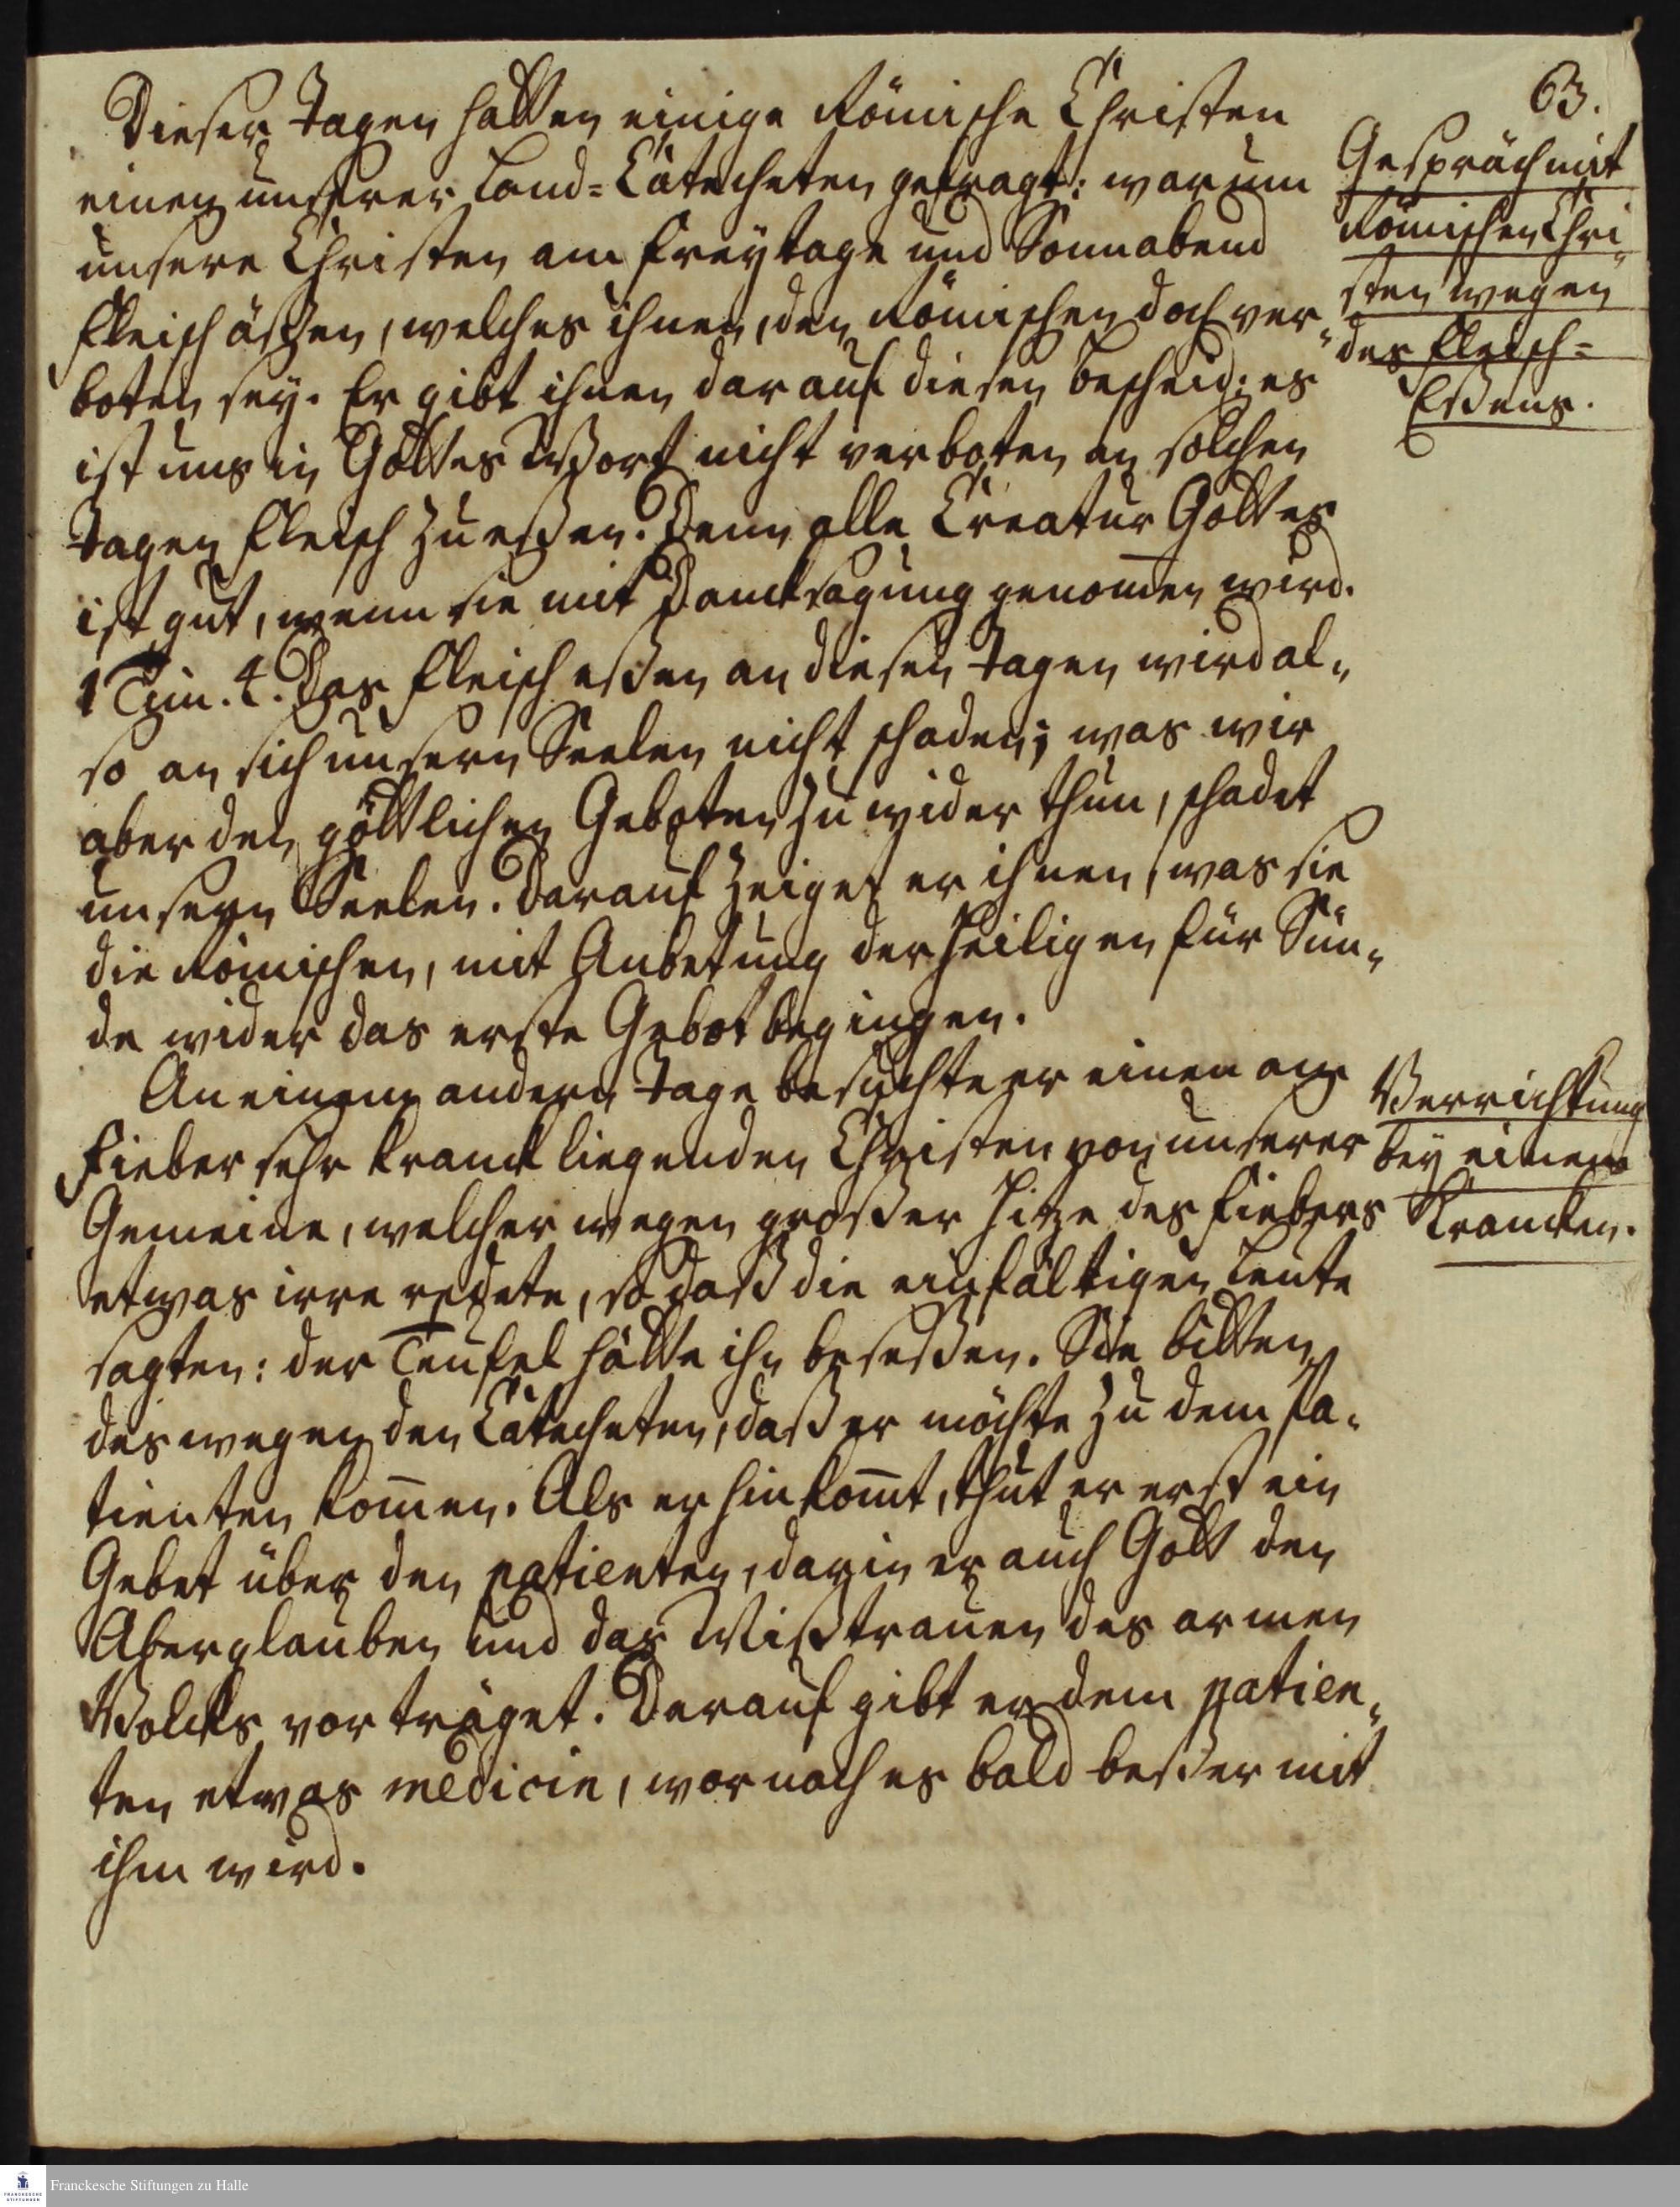 63.
Dieser Tagen hatten einige Römische Christen
einen unserer Land-Catecheten gefragt: warum
unsere Christen am Freytage und Sonnabend
Fleisch äßen, welches ihnen, den Römischen doch ver„
boten sey. Er gibt ihnen darauf diesen Bescheid: es
ist uns in Gottes Wort nicht verboten an solchen
Tagen Fleisch zu eßen. Denn alle Creatur Gottes
ist gut, wenn sie mit Dancksagung genom̄en wird.
1 Tim. 4. Das Fleisch eßen an diesen Tagen wird al„
so an sich unsern Seelen nicht schaden; was wir
aber den göttlichen Geboten zu wider thun, schadet
unsern Seelen. Darauf zeiget er ihnen, was sie
die Römischen, mit Anbetung der Heiligen für Sün„
de wider das erste Gebot begingen.
An einem andern Tage besuchte er einen am
Fieber sehr kranck liegenden Christen von unserer
Gemeine, welcher wegen großer Hitze des Fiebers
etwas irre redete, so daß die einfältigen Leute
sagten: der Teufel hätte ihn beseßen. Sie bitten
deswegen den Catecheten, daß er möchte zu dem Pa„
tienten kom̄en. Als er hinkom̄t, thut er erst ein
Gebet über den patienten, darin er auch Gott den
Aberglauben und das Mißtrauen des armen
Volcks vorträget. Darauf gibt er dem patien„
ten etwas medicin, wornach es bald beßer mit
ihm wird.
Gespräch mit
Römischen Chri„
sten wegen
des Fleisch-
Eßens.
Verrichtung
bey einem
Krancken.
Franckesche Stiftungen zu Halle
FRANCKESCHE
STIFTUNGEN